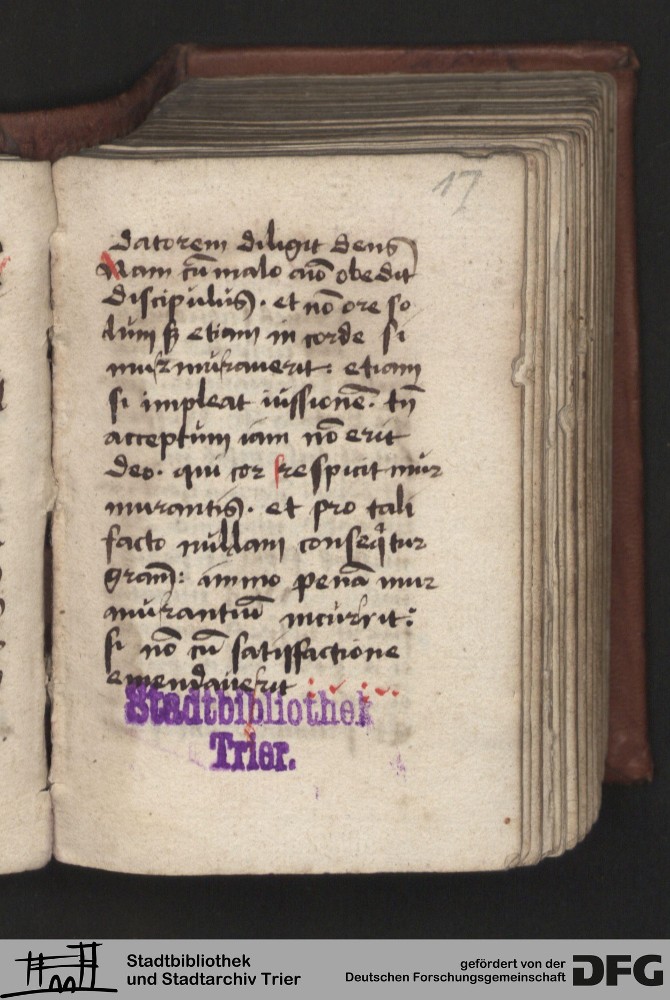 17
datorem diligit deus
Nam cū malo aīo obedit
discipulus. et nō ore so
lum sꝫ etiam in corde si
murmurauerit: etiam
si impleat iussionē. tn̄
acceptum iam nō erit
deo. qui cor respicit mur
murantis. et pro tali
facto nullam conseqͥtur
gram̄: immo penā mur
murantiū incurrit:
si nō cū satisfactione
emendauerit
Stadtbibliothek
Trier.
Stadtbibliothek
und Stadtarchiv Trier
gefördert von der
Deutschen Forschungsgemeinschaft
DFG